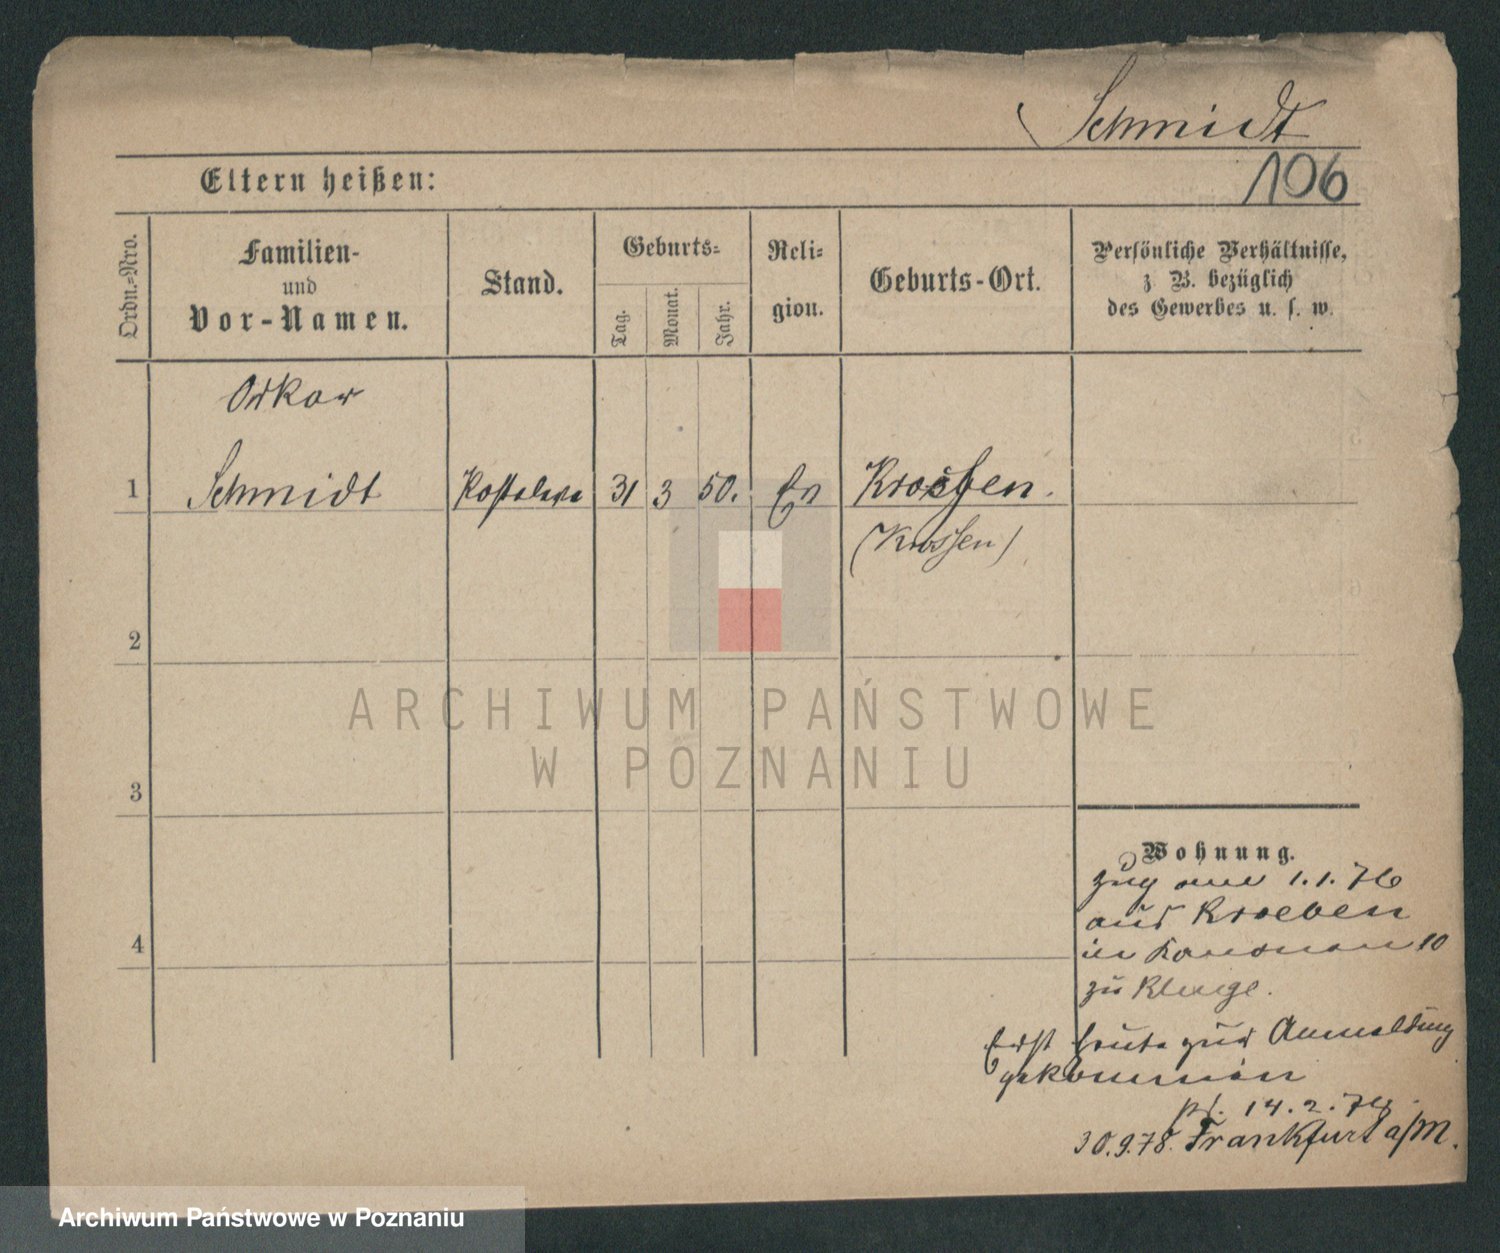 Schmidt
Eltern heißen:
106
Ordn.-Nro.
Familien-
und
Vor-Namen.
Stand.
Geburts-
Tag.
Monat.
Jahr.
Reli-
gion.
Geburts-Ort.
Persönliche Verhältnisse,
z B. bezüglich
des Gewerbes u. s. w.
Oskar
1 Schmidt 31 3 50. Ev Krossen.
(Krossen)
2
3
4
Wohnung.
Zug am 1.1.76
aus Kroeben
in 10
zu Kluge.
Erst heute zur Anmeldung
gekommen
pr. 14.2.76.
30.9.78. Frankfurt a/M.
ARCHIWUM PAŃSTWOWE
W POZNANIU
Archiwum Państwowe w Poznaniu